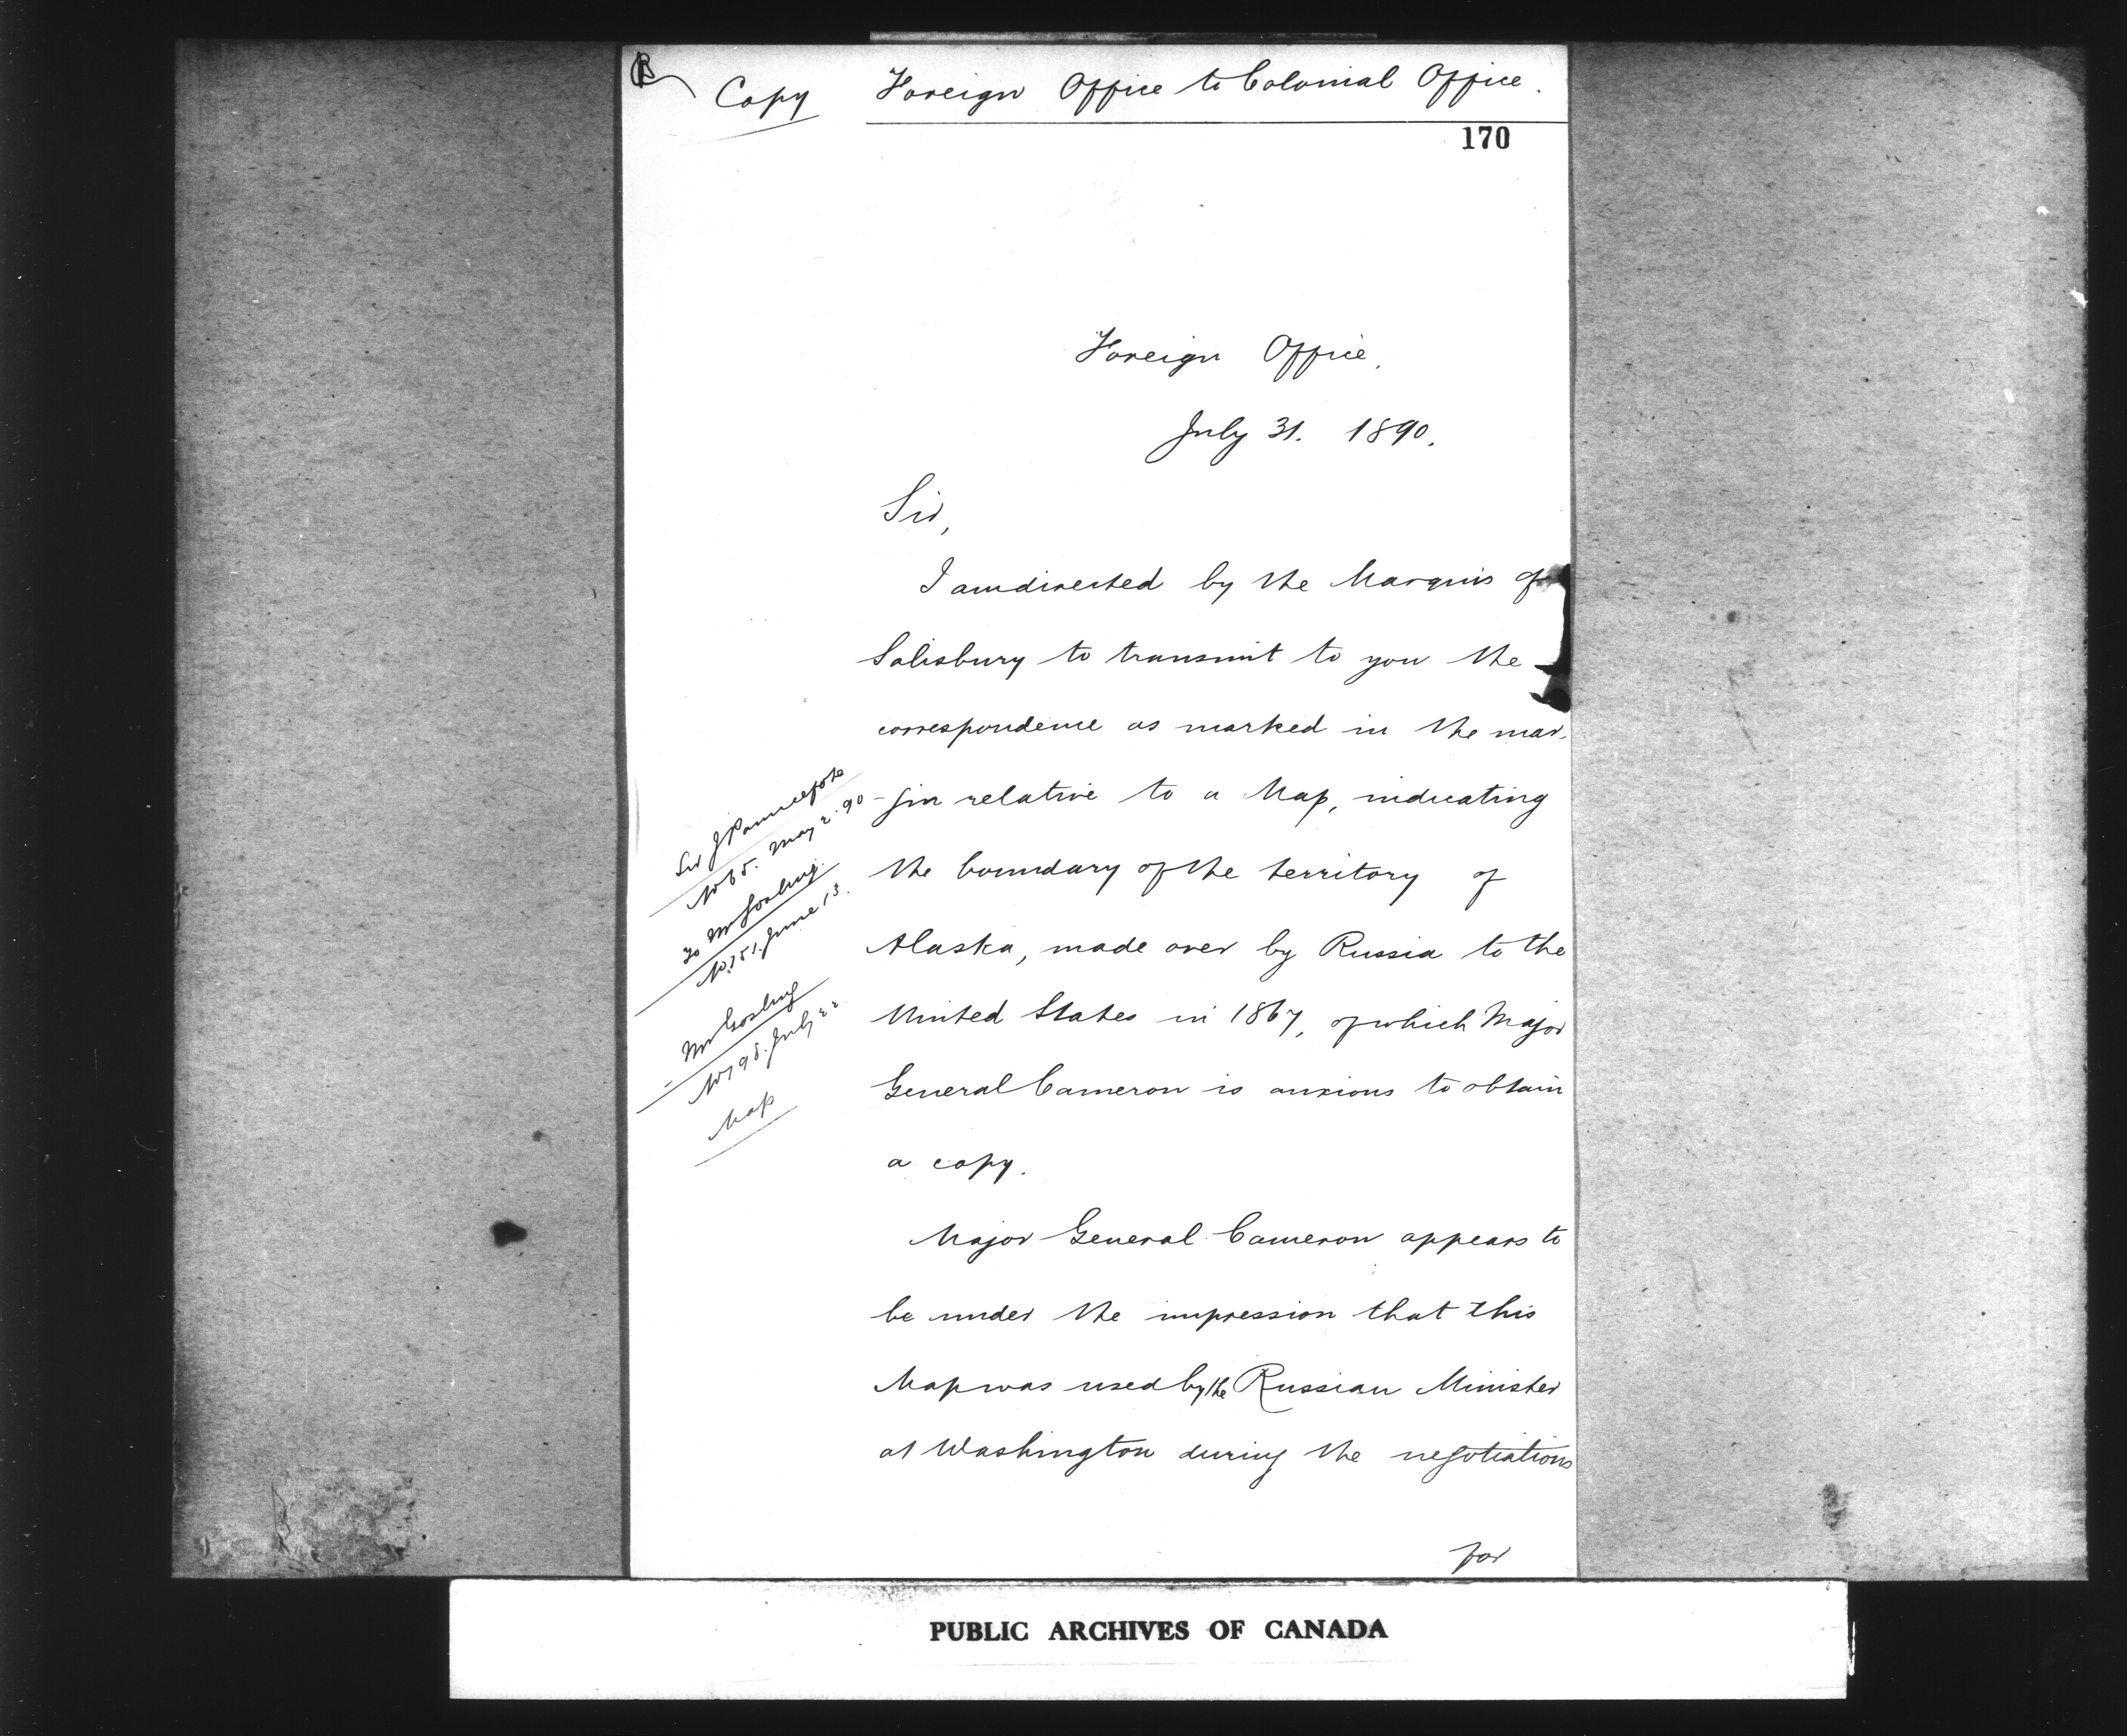 B
Copy Foreign Office to Colonial Office.
170
Foreign Office,
July 31. 1890.
Sir,
I am directed by the Marquis of
Salisbury to transmit to you the
correspondence as marked in the mar-
-gin relative to a Map, indicating
the boundary of the territory of
Alaska, made over by Russia to the
United States in 1867, of which Major
General Cameron is anxious to obtain
a copy.
Sir J Pauncefote
No 65. May 2. 90
To Mr Gosling
No 151. June 13.
Mr Gosling
No 98. July 22
Map
Major General Cameron appears to
be under the impression that this
Map was used by the Russian Minister
at Washington during the negotiations
for
PUBLIC ARCHIVES OF CANADA